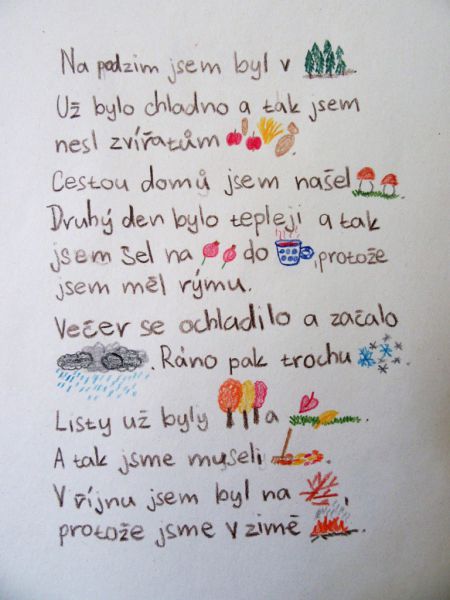 Na podzim jsem byl v
Už bylo chladno a tak jsem
nesl zvířatům
Cestou domů jsem našel
Druhý den bylo tepleji a tak
jsem šel na do , protože
jsem měl rýmu.
Večer se ochladilo a začalo
. Ráno pak trochu
Listy už byly a .
A tak jsme museli .
V říjnu jsem byl na ,
protože jsme v zimě .